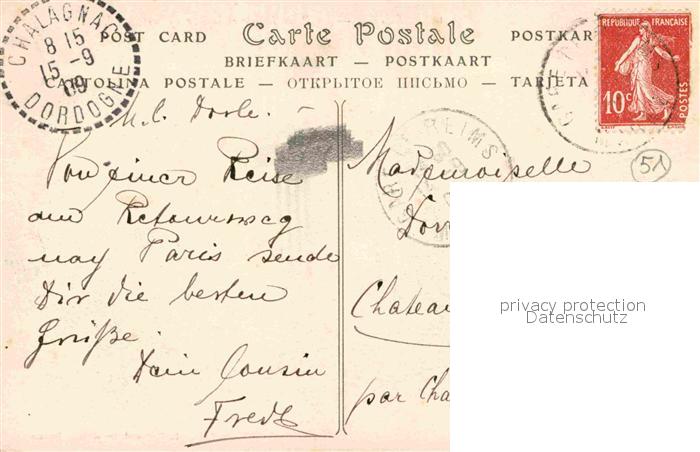 CHALAGNAC
8 15
15 -9
09
DORDOGNE
POST CARD
Carte Postale
POSTKART
BRIEFKAART — POSTKAART
CARTOLINA POSTALE — ОТКРЫТОЕ ПИСЬМО — TARJETA
REPUBLIQUE FRANÇAISE
10c
POSTES
REIMS
51
M. l. Dorle. -
Von einer Reise
am Retourweg
nay Paris sende
Dir die besten
Grüße.
Dein Cousin
Fred
Mademoiselle
Chateau
par Cha
privacy protection
Datenschutz